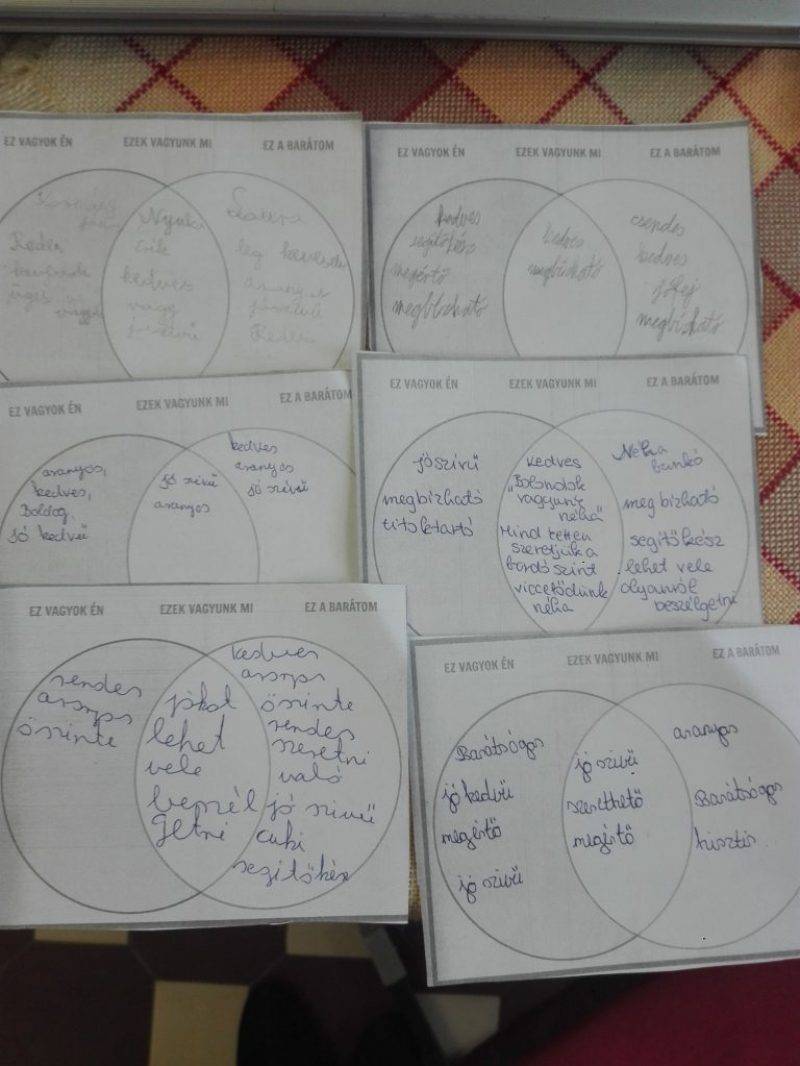 EZ VAGYOK ÉN
EZEK VAGYUNK MI
EZ A BARÁTOM
kedves
EZ VAGYOK ÉN
EZEK VAGYUNK MI
EZ A BARÁTOM
kedves
segítőkész
megértő
megbízható
kedves
megbízható
csendes
kedves
jófej
megbízható
EZ VAGYOK ÉN
EZEK VAGYUNK MI
EZ A BARÁTOM
aranyos,
kedves,
Boldog,
jó kedvű
jó szivű
aranyos
kedves
aranyos
jó szivű
EZ VAGYOK ÉN
EZEK VAGYUNK MI
EZ A BARÁTOM
jószivű
megbizható
titoktartó
kedves
"Bolondok
vagyunk
néha"
Mind ketten
szeretjük a
bordó szint
viccelődünk
néha
Néha
bunkó
megbizható
segitőkész
lehet vele
olyanról
beszélgetni
EZ VAGYOK ÉN
EZEK VAGYUNK MI
EZ A BARÁTOM
rendes
aranyos
őszinte
jókat
lehet
vele
beszél
getni
kedves
aranyos
őszinte
rendes
szeretni
való
jó szivű
cuki
segitőkész
EZ VAGYOK ÉN
EZEK VAGYUNK MI
EZ A BARÁTOM
Barátságos
jó kedvű
megértő
jó szivű
jó szivű
szerethető
megértő
aranyos
Barátságos
hisztis